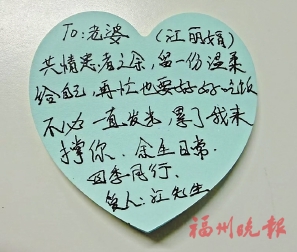 To:老婆 (江丽娟)
共情患者之余,留一份温柔
给自己,再忙也要好好吃饭
不必一直发光,累了我来
撑你.余生日常.
四季同行.
爱人:江先生
福州晚报